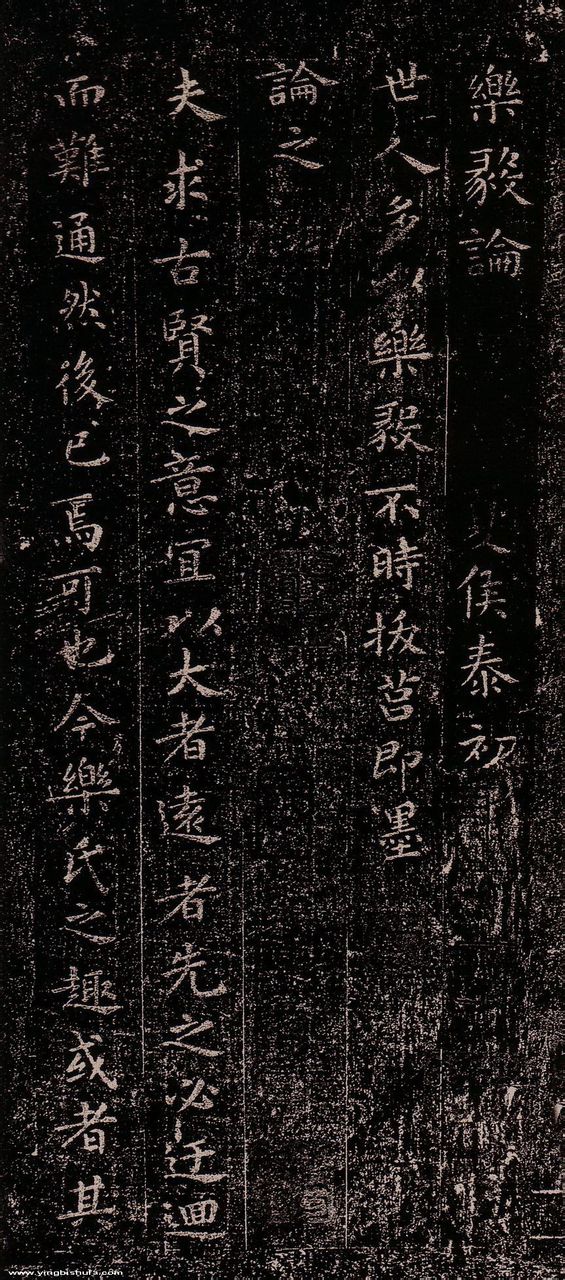 樂毅論
侯泰初
世人多以樂毅不時拔莒即墨
論之
夫求古賢之意宜以大者遠者先之必迂迴
而難通然後已焉可也今樂氏之趣或者其
www.yingbishufa.com